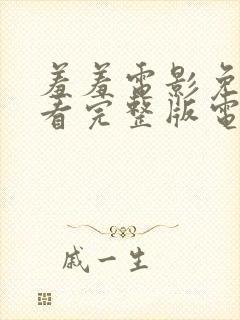 羞羞電影免
看完整版電
戚一生